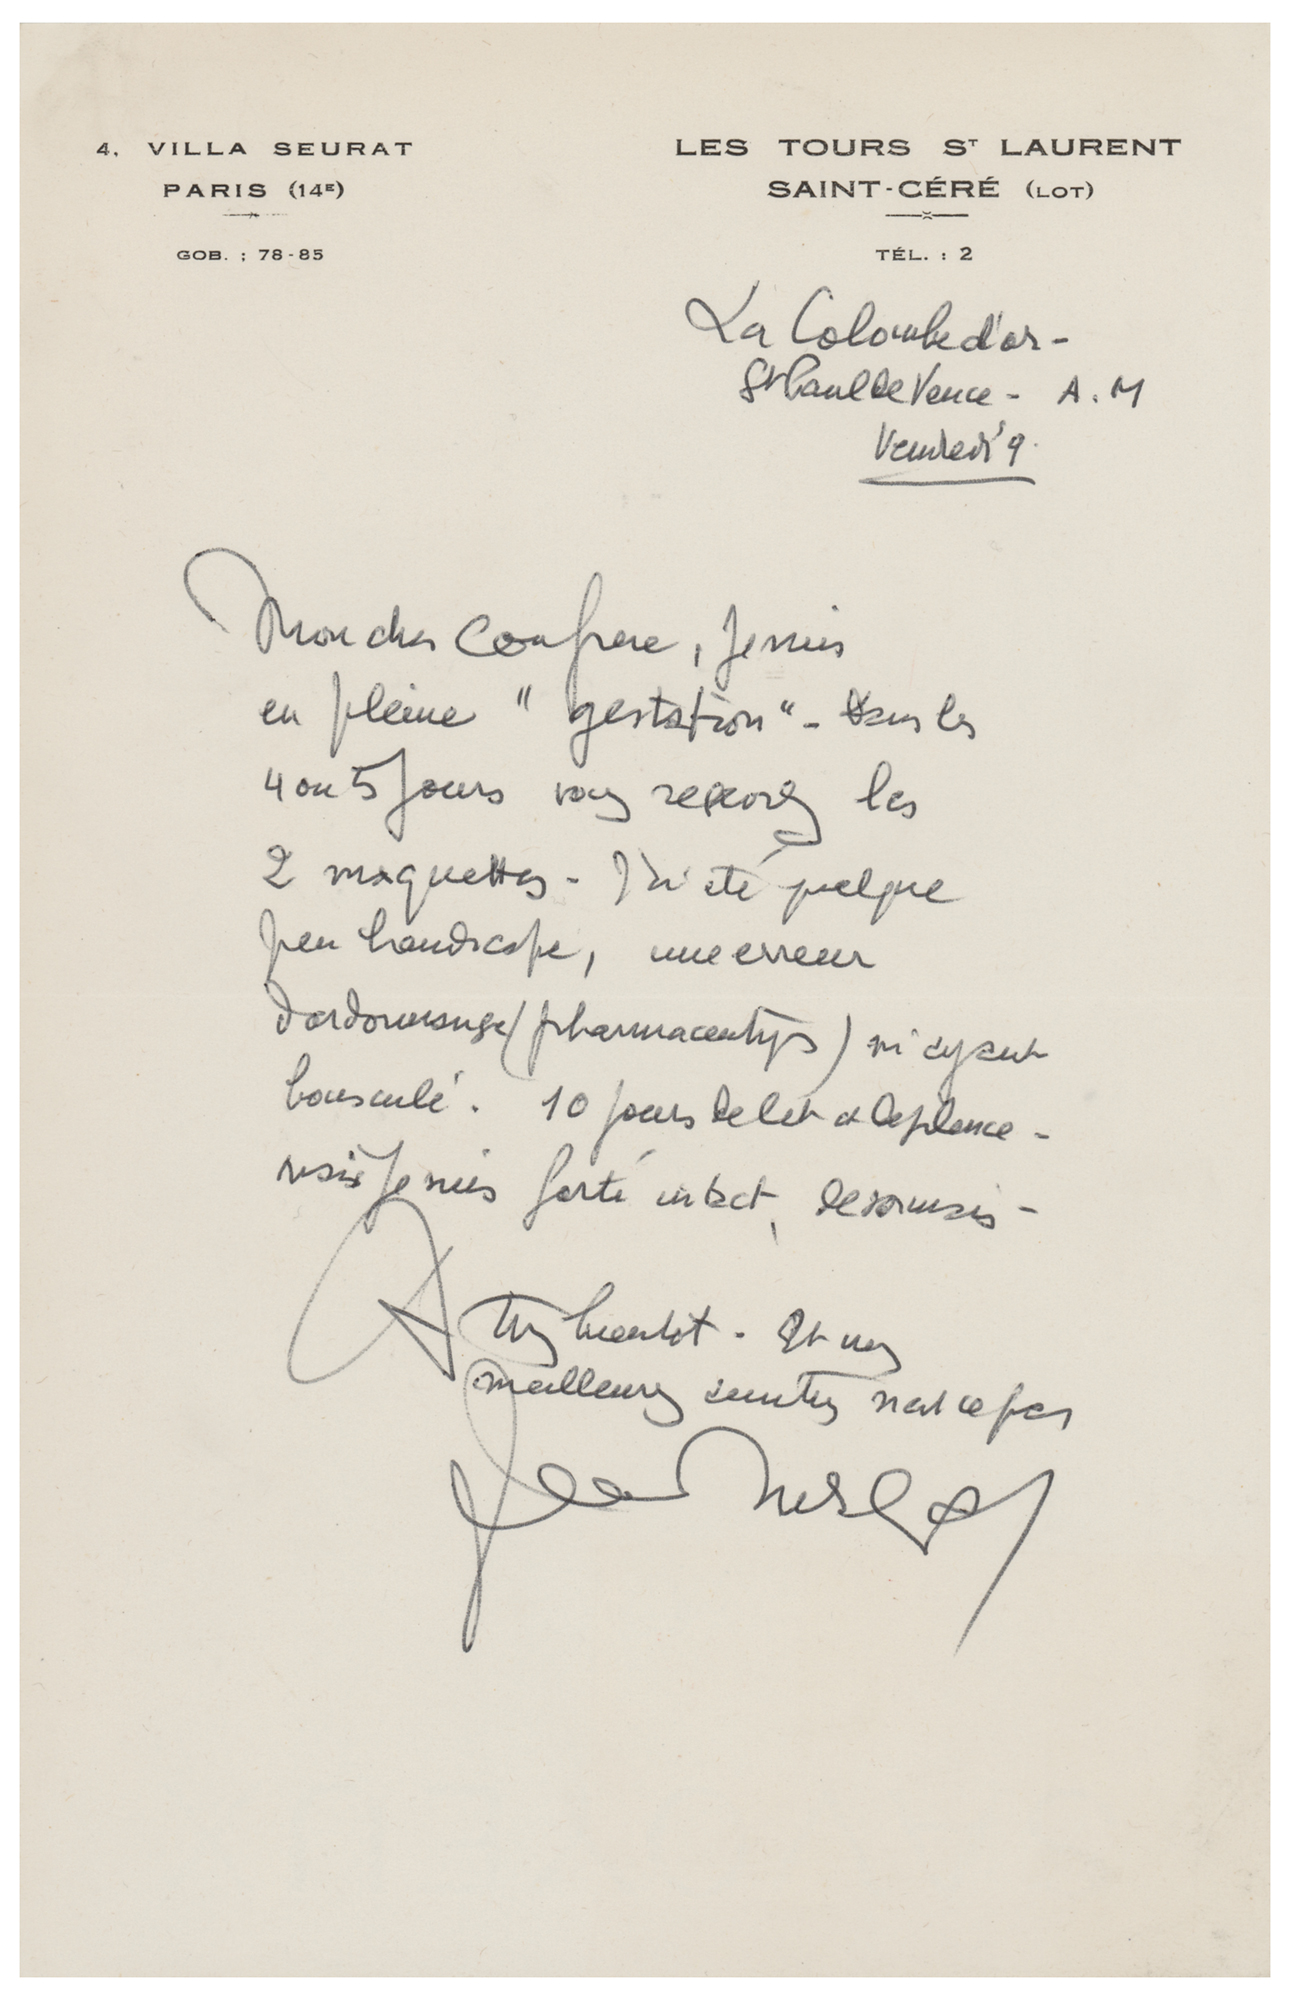 4. VILLA SEURAT
PARIS (14E)
GOB. : 78-85
LES TOURS ST LAURENT
SAINT-CÉRÉ (LOT)
TÉL. : 2
La Colombe d'or -
St Paul de Vence - A.M
Vendredi 9.
Mon cher Confrere, Je suis
en pleine "gestation" - Dans les
4 ou 5 jours vous recevrez les
2 maquettes - J'ai été quelque
peu handicapé, une erreur
d'ordonnance (pharmaceutique) m'ayant
bousculé. 10 jours de lit et la
mais Je suis intact, desormais -
A très bientot - Et mes
meilleures n'est ce pas
Jean Lurçat